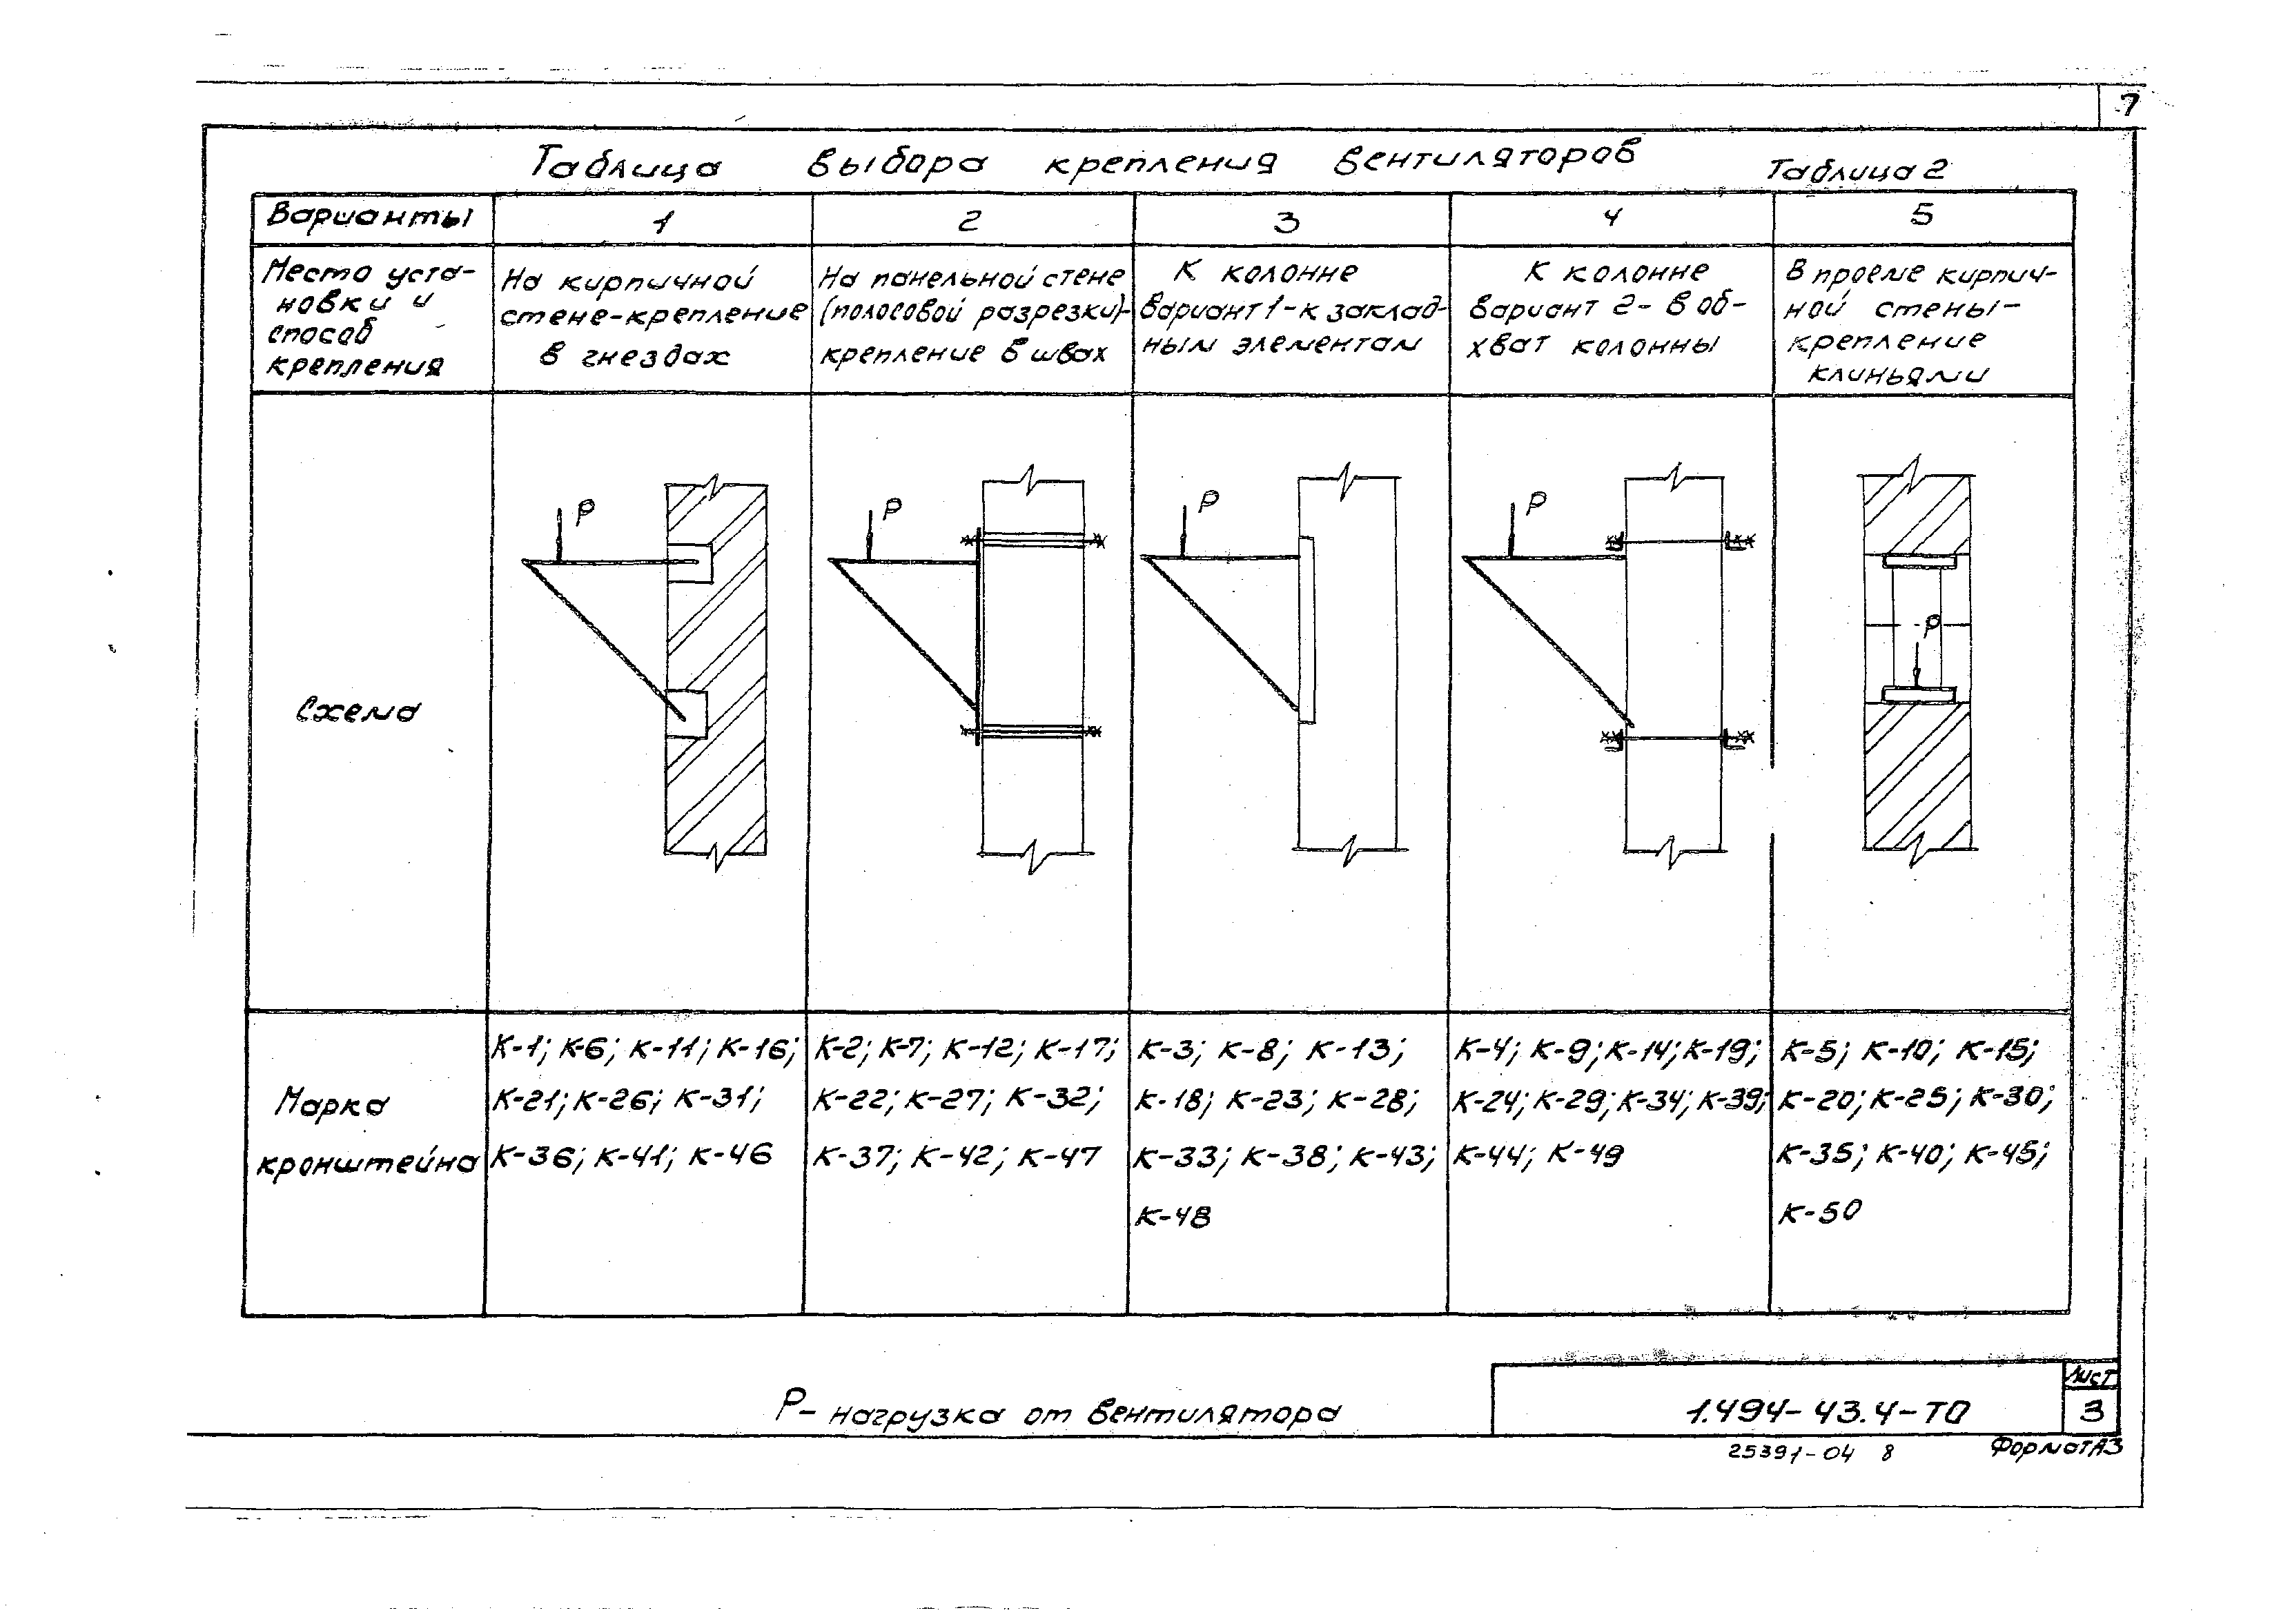 7
Таблица выбора крепления вентиляторов
Таблица 2
Варианты
1
2
3
4
5
Место уста-
новки и
способ
крепления
На кирпичной
стене-крепление
в гнездах
На панельной стене
(полосовой разрезки)-
крепление в швах
К колонне
вариант 1-к заклад-
ным элементам
К колонне
вариант 2- в об-
хват колонны
В проеме кирпич-
ной стены-
крепление
клиньями
Схема
P
P
P
P
P
Марка
кронштейна
К-1; К-6; К-11; К-16;
К-21; К-26; К-31;
К-36; К-41; К-46
К-2; К-7; К-12; К-17;
К-22; К-27; К-32;
К-37; К-42; К-47
К-3; К-8; К-13;
К-18; К-23; К-28;
К-33; К-38; К-43;
К-48
К-4; К-9; К-14; К-19;
К-24; К-29; К-34; К-39;
К-44; К-49
К-5; К-10; К-15;
К-20; К-25; К-30;
К-35; К-40; К-45;
К-50
P- нагрузка от вентилятора
1.494-43.4-ТО
Лист
3
25391-04 8
Формат А3